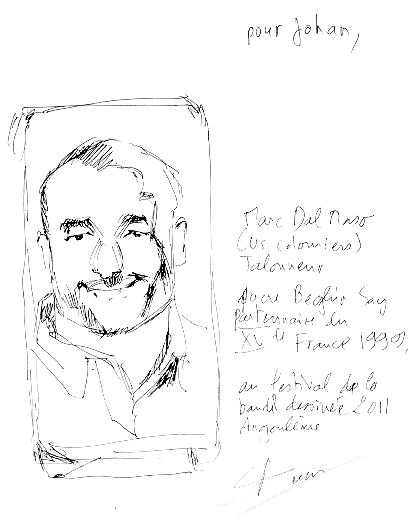 pour Johan,
Marc Dal Maso
(US Colomiers)
Talonneur
Sucre Beghin Say
partenaire du
XV de France 1999,
au festival de la
bande dessinée 2011
Angoulême